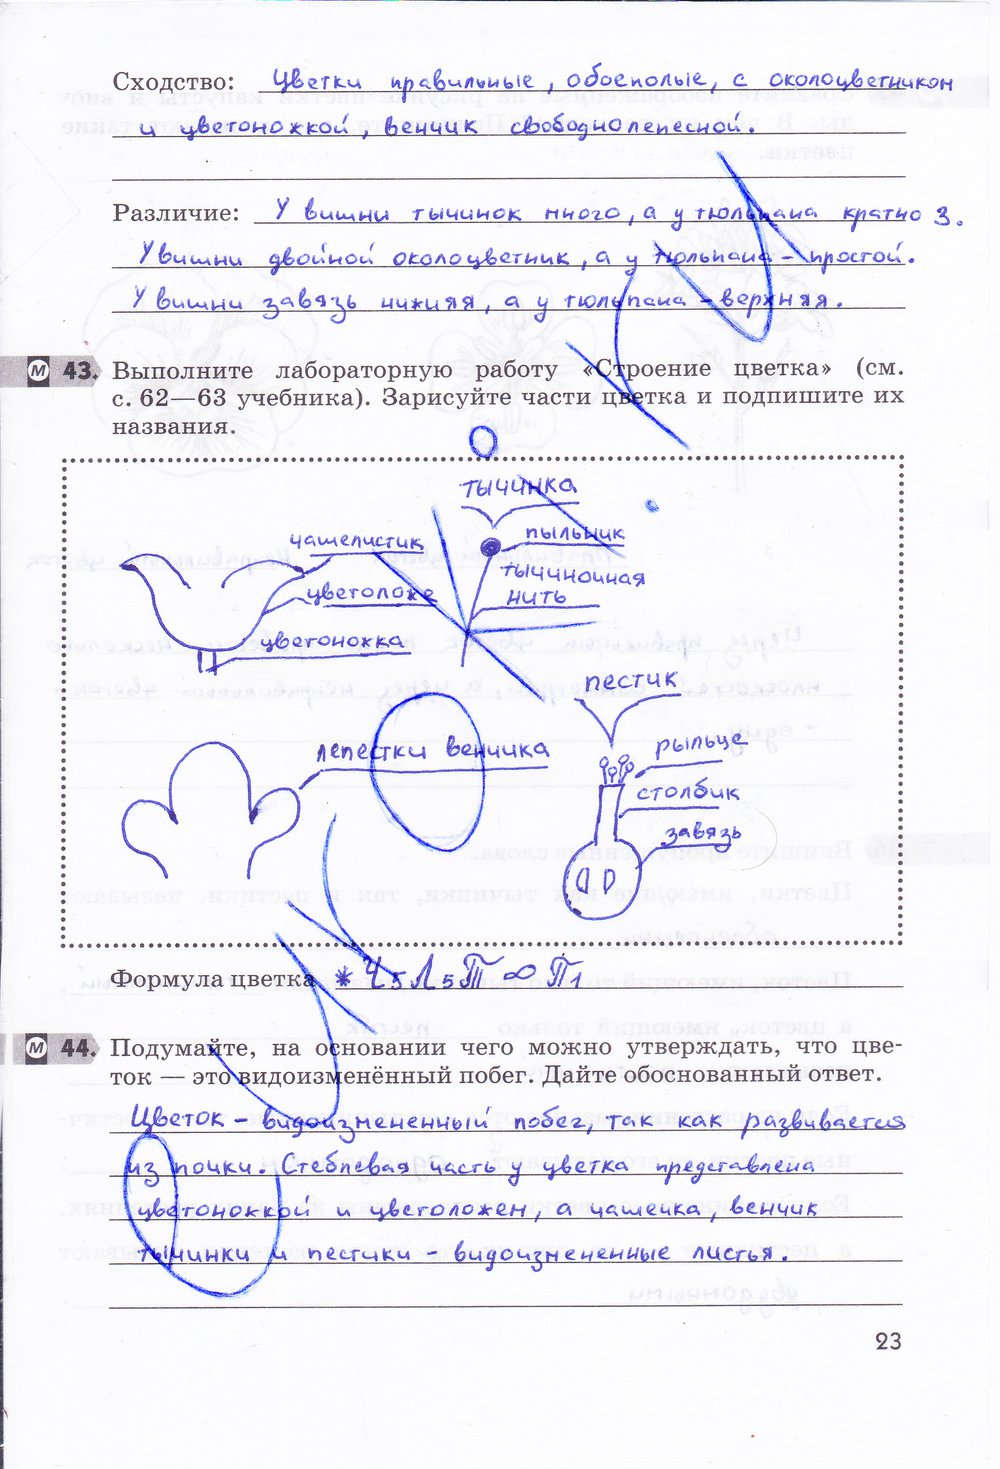 Сходство: Цветки правильные, обоеполые, с околоцветником
и цветоножкой, венчик свободнолепесной.
Различие: У вишни тычинок много, а у тюльпана кратно 3.
У вишни двойной околоцветник, а у тюльпана - простой.
У вишни завязь нижняя, а у тюльпана - верхняя.
М 43. Выполните лабораторную работу «Строение цветка» (см.
с. 62—63 учебника). Зарисуйте части цветка и подпишите их
названия.
тычинка
чашелистик
пыльник
тычиночная
нить
цветоложе
цветоножка
пестик
лепестки венчика
рыльце
столбик
завязь
Формула цветка * Ч5Л5Т∞П1
М 44. Подумайте, на основании чего можно утверждать, что цве-
ток — это видоизменённый побег. Дайте обоснованный ответ.
Цветок - видоизмененный побег, так как развивается
из почки. Стеблевая часть у цветка представлена
цветоножкой и цветоложем, а чашечка, венчик
тычинки и пестики - видоизмененные листья.
23